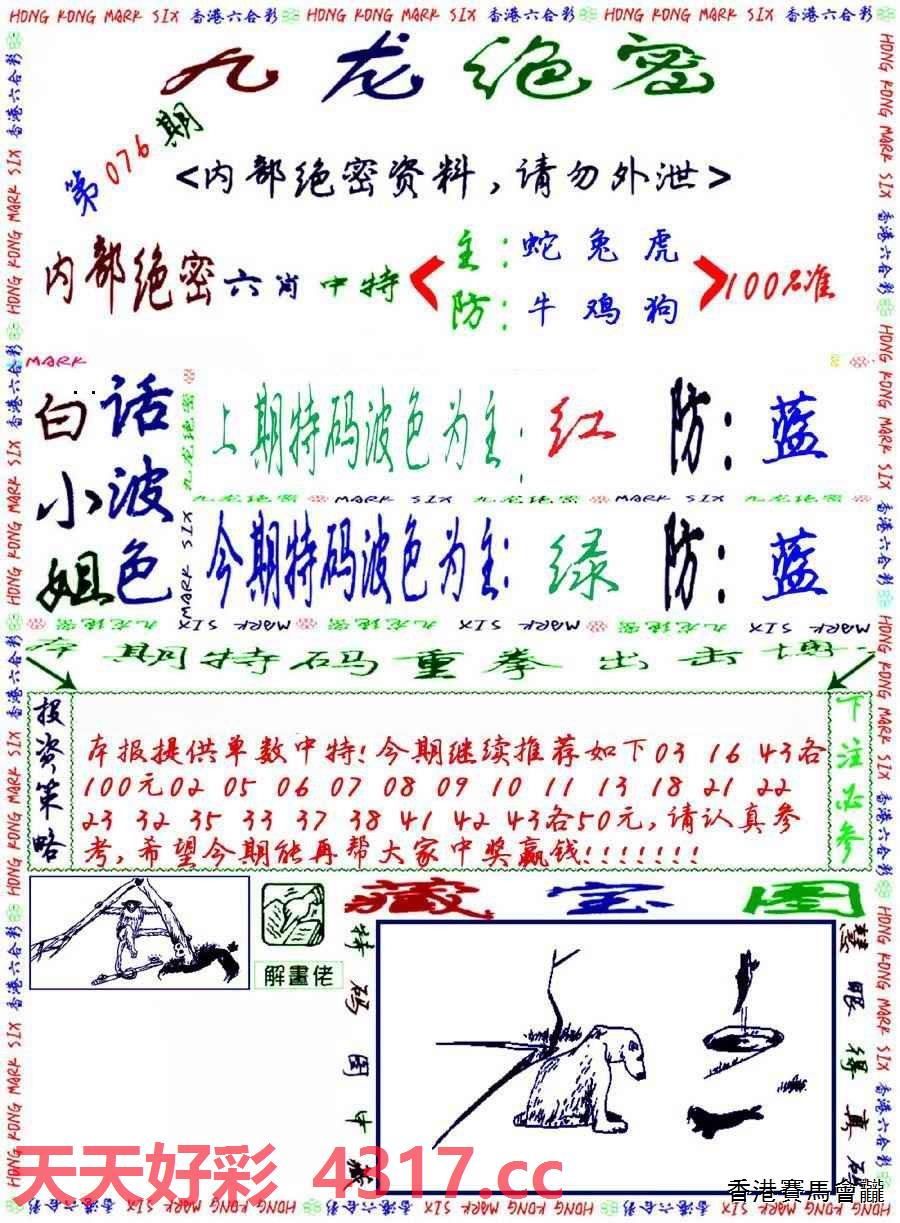 HONG KONG MARK SIX 香港六合彩 HONG KONG MARK SIX 香港六合彩 HONG KONG MARK SIX 香港六合彩 HONG KONG MARK SIX 香港六合彩
九龙绝密
第076期
<内部绝密资料,请勿外泄>
内部绝密六肖中特
主:蛇兔虎
防:牛鸡狗
100%准
MARK
白话
小波
姐色
上期特码波色为主:红 防:蓝
九龙绝密 MARK SIX 九龙绝密 MARK SIX 九龙绝密
今期特码波色为主:绿 防:蓝
MARK SIX 九龙绝密 MARK SIX 九龙绝密 MARK SIX 九龙绝密
本期特码重拳出击博
投资策略
本报提供单数中特!今期继续推荐如下03 16 43各
100元02 05 06 07 08 09 10 11 13 18 21 22
23 32 35 33 37 38 41 42 43各50元,请认真参
考,希望今期能再帮大家中奖赢钱!!!!!!!
下注必参
解畫佬
藏宝图
特码图中
慧眼得真
天天好彩 4317.cc
香港賽馬會